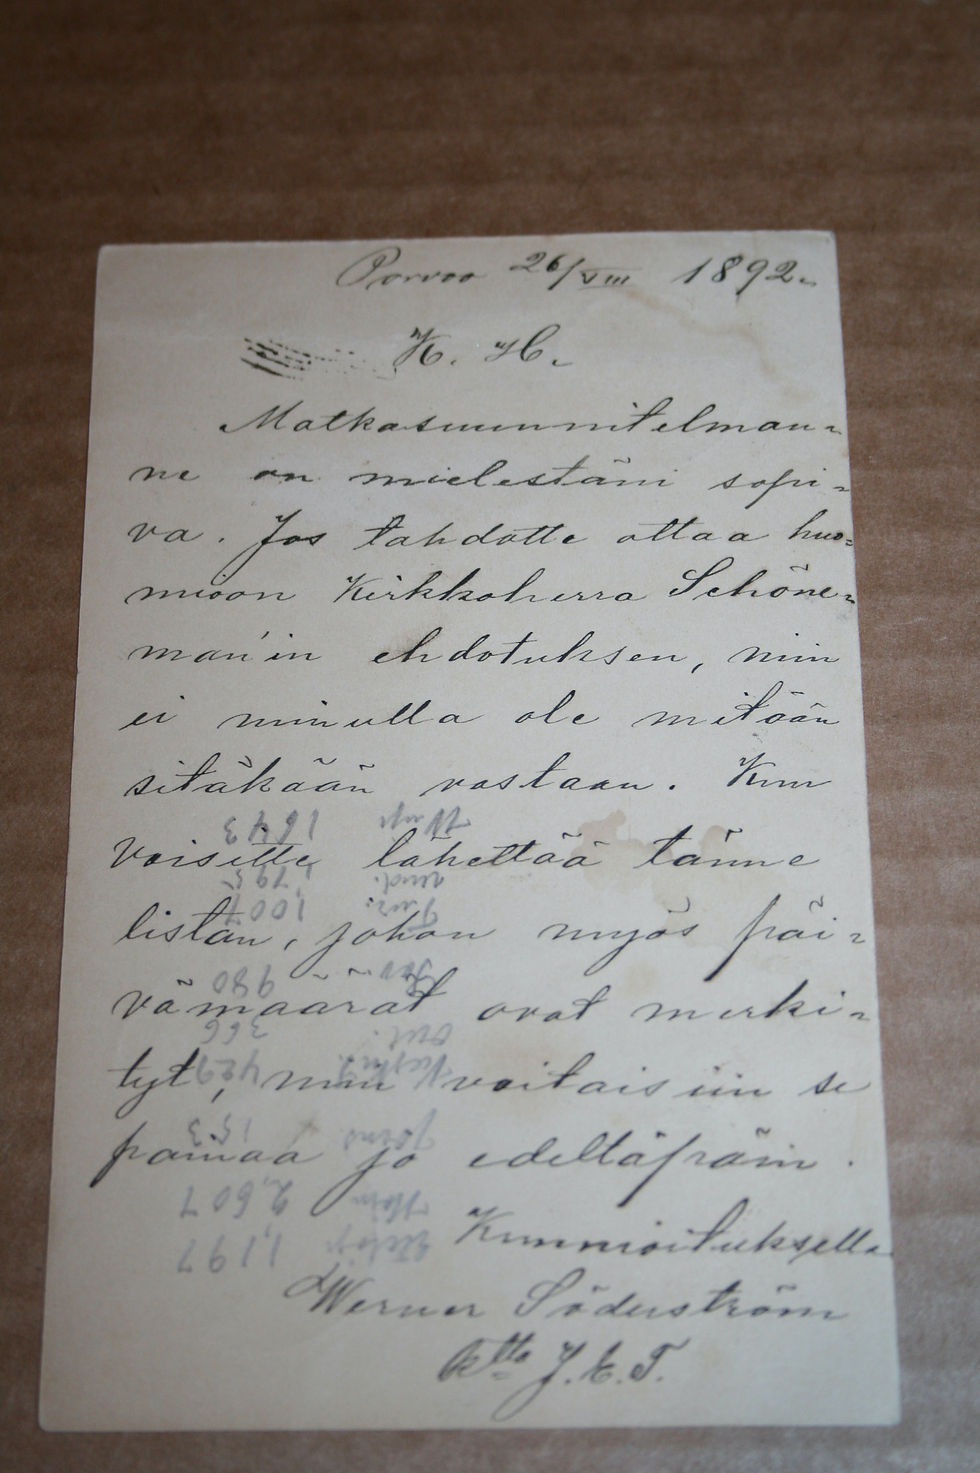 Porvoo 26/VIII 1892.
K. H.
Matkasuunnitelman=
ne on mielestäni sopi=
va. Jos tahdotte ottaa huo=
mioon Kirkkoherra Schöne=
man'in ehdotuksen, niin
ei minulla ole mitään
sitäkään vastaan. Kun
voisitte lähettää tänne
listan, johon myös päi=
vämäärät ovat merki=
tyt, niin voitaisiin se
painaa jo edeltäpäin.
Kunnioituksella
Werner Söderström
ktta J. E. T.
1,197
2,607
153
429
366
980
1,007
1,795
1643